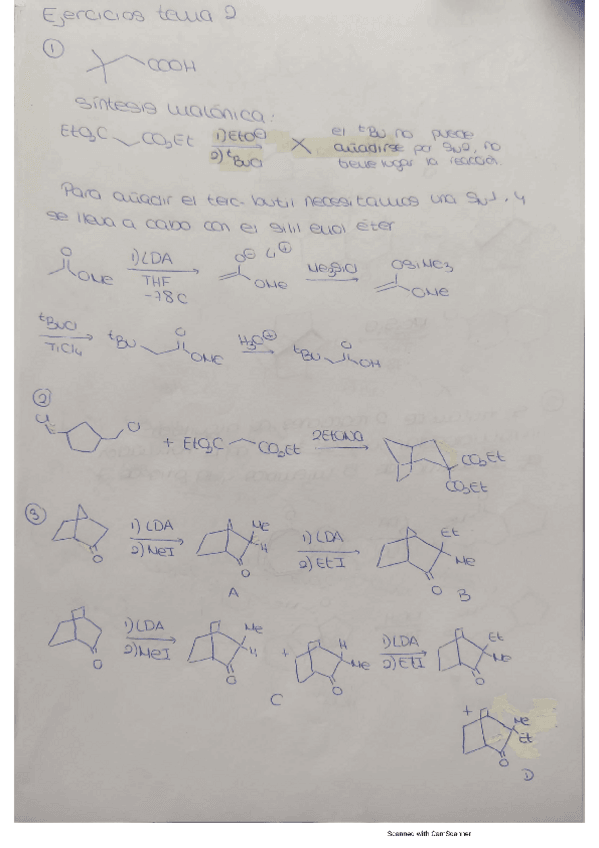 Ejercicios tema 2
①
COOH
síntesis malónica:
EtO₂C CO₂Et 1) EtO⊖ 2) ᵗBuCl X el ᵗBu no puede
añadirse por SN2, no
tiene lugar la reacción.
Para añadir el terc-butil necesitamos una SN1, y
se lleva a cabo con el silil enol éter
O OMe 1) LDA THF -78C O⊖ Li⊕ OMe Me₃SiCl OSiMe₃ OMe
ᵗBuCl TiCl₄ ᵗBu O OMe H₃O⊕ ᵗBu O OH
②
Cl Cl + EtO₂C CO₂Et 2EtONa CO₂Et
CO₂Et
③
O 1) LDA 2) MeI Me H O 1) LDA 2) EtI Et Me O
A B
O 1) LDA 2) MeI Me H O + H Me O 1) LDA 2) EtI Et Me O
C
+ Me Et O
D
Scanned with CamScanner